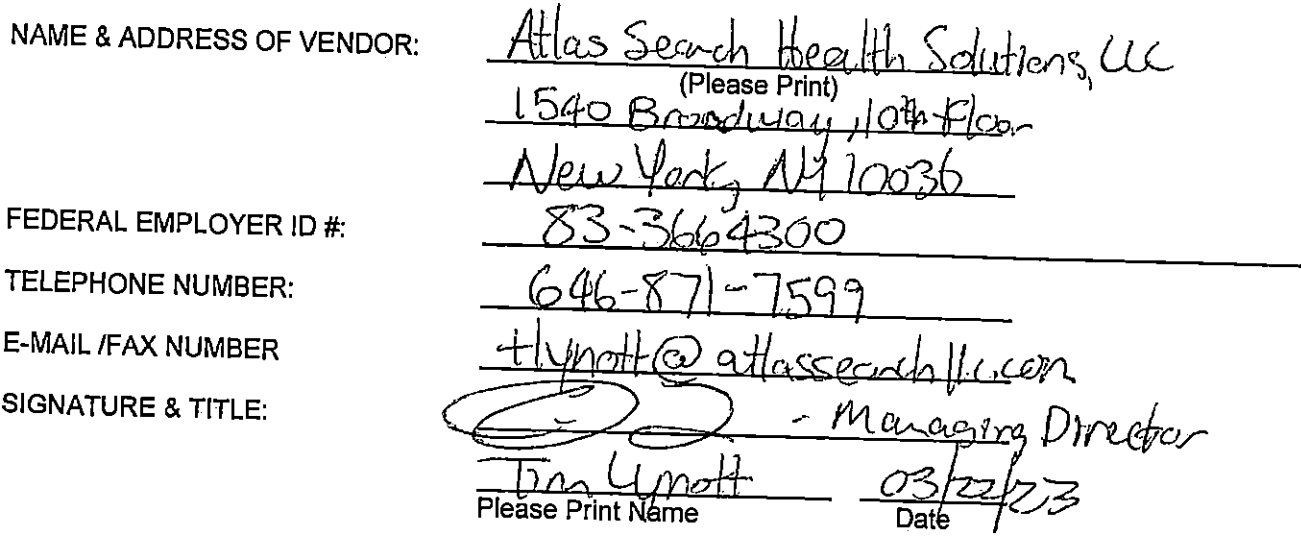 NAME & ADDRESS OF VENDOR: Atlas Search Health Solutions, LLC
(Please Print)
1540 Broadway, 10th Floor
New York, NY 10036
FEDERAL EMPLOYER ID #: 83-3664300
TELEPHONE NUMBER: 646-871-7599
E-MAIL /FAX NUMBER tlynott@atlassearchllc.com
SIGNATURE & TITLE: - Managing Director
Tim Lynott 03/22/23
Please Print Name Date